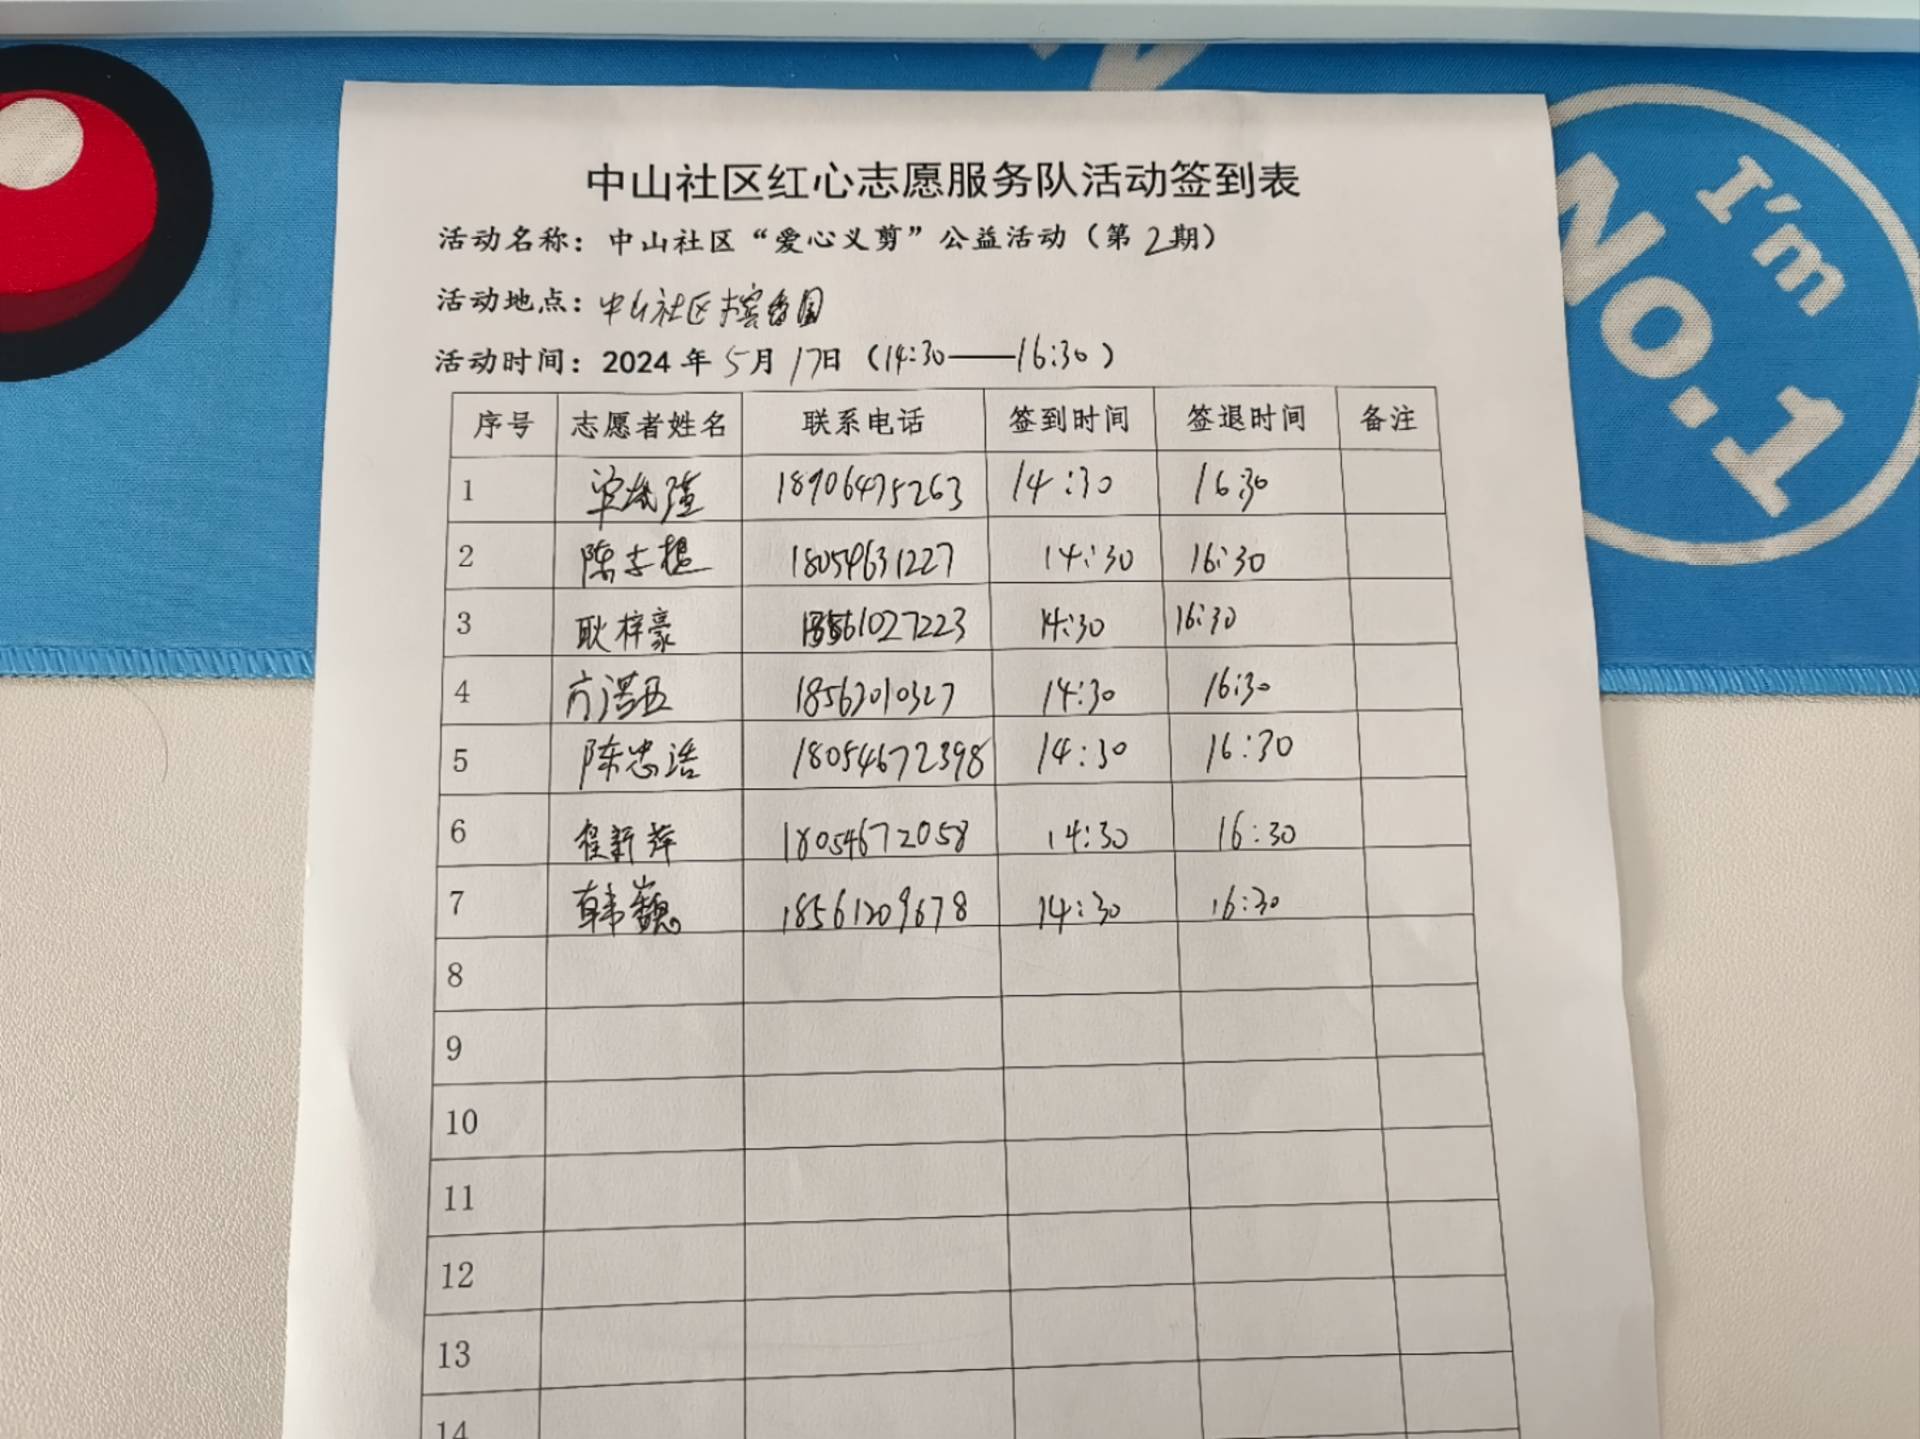 I'm
No.1
中山社区红心志愿服务队活动签到表
活动名称：中山社区“爱心义剪”公益活动（第2期）
活动地点：中山社区
活动时间：2024年5月17日（14:30——16:30）
序号 志愿者姓名 联系电话 签到时间 签退时间 备注
1 18906475263 14:30 16:30
2 陈 18054631227 14:30 16:30
3 耿梓豪 18561027223 14:30 16:30
4 方 18563010327 14:30 16:30
5 陈忠浩 18054672398 14:30 16:30
6 程新萍 18054672058 14:30 16:30
7 韩巍 18561209678 14:30 16:30
8
9
10
11
12
13
14